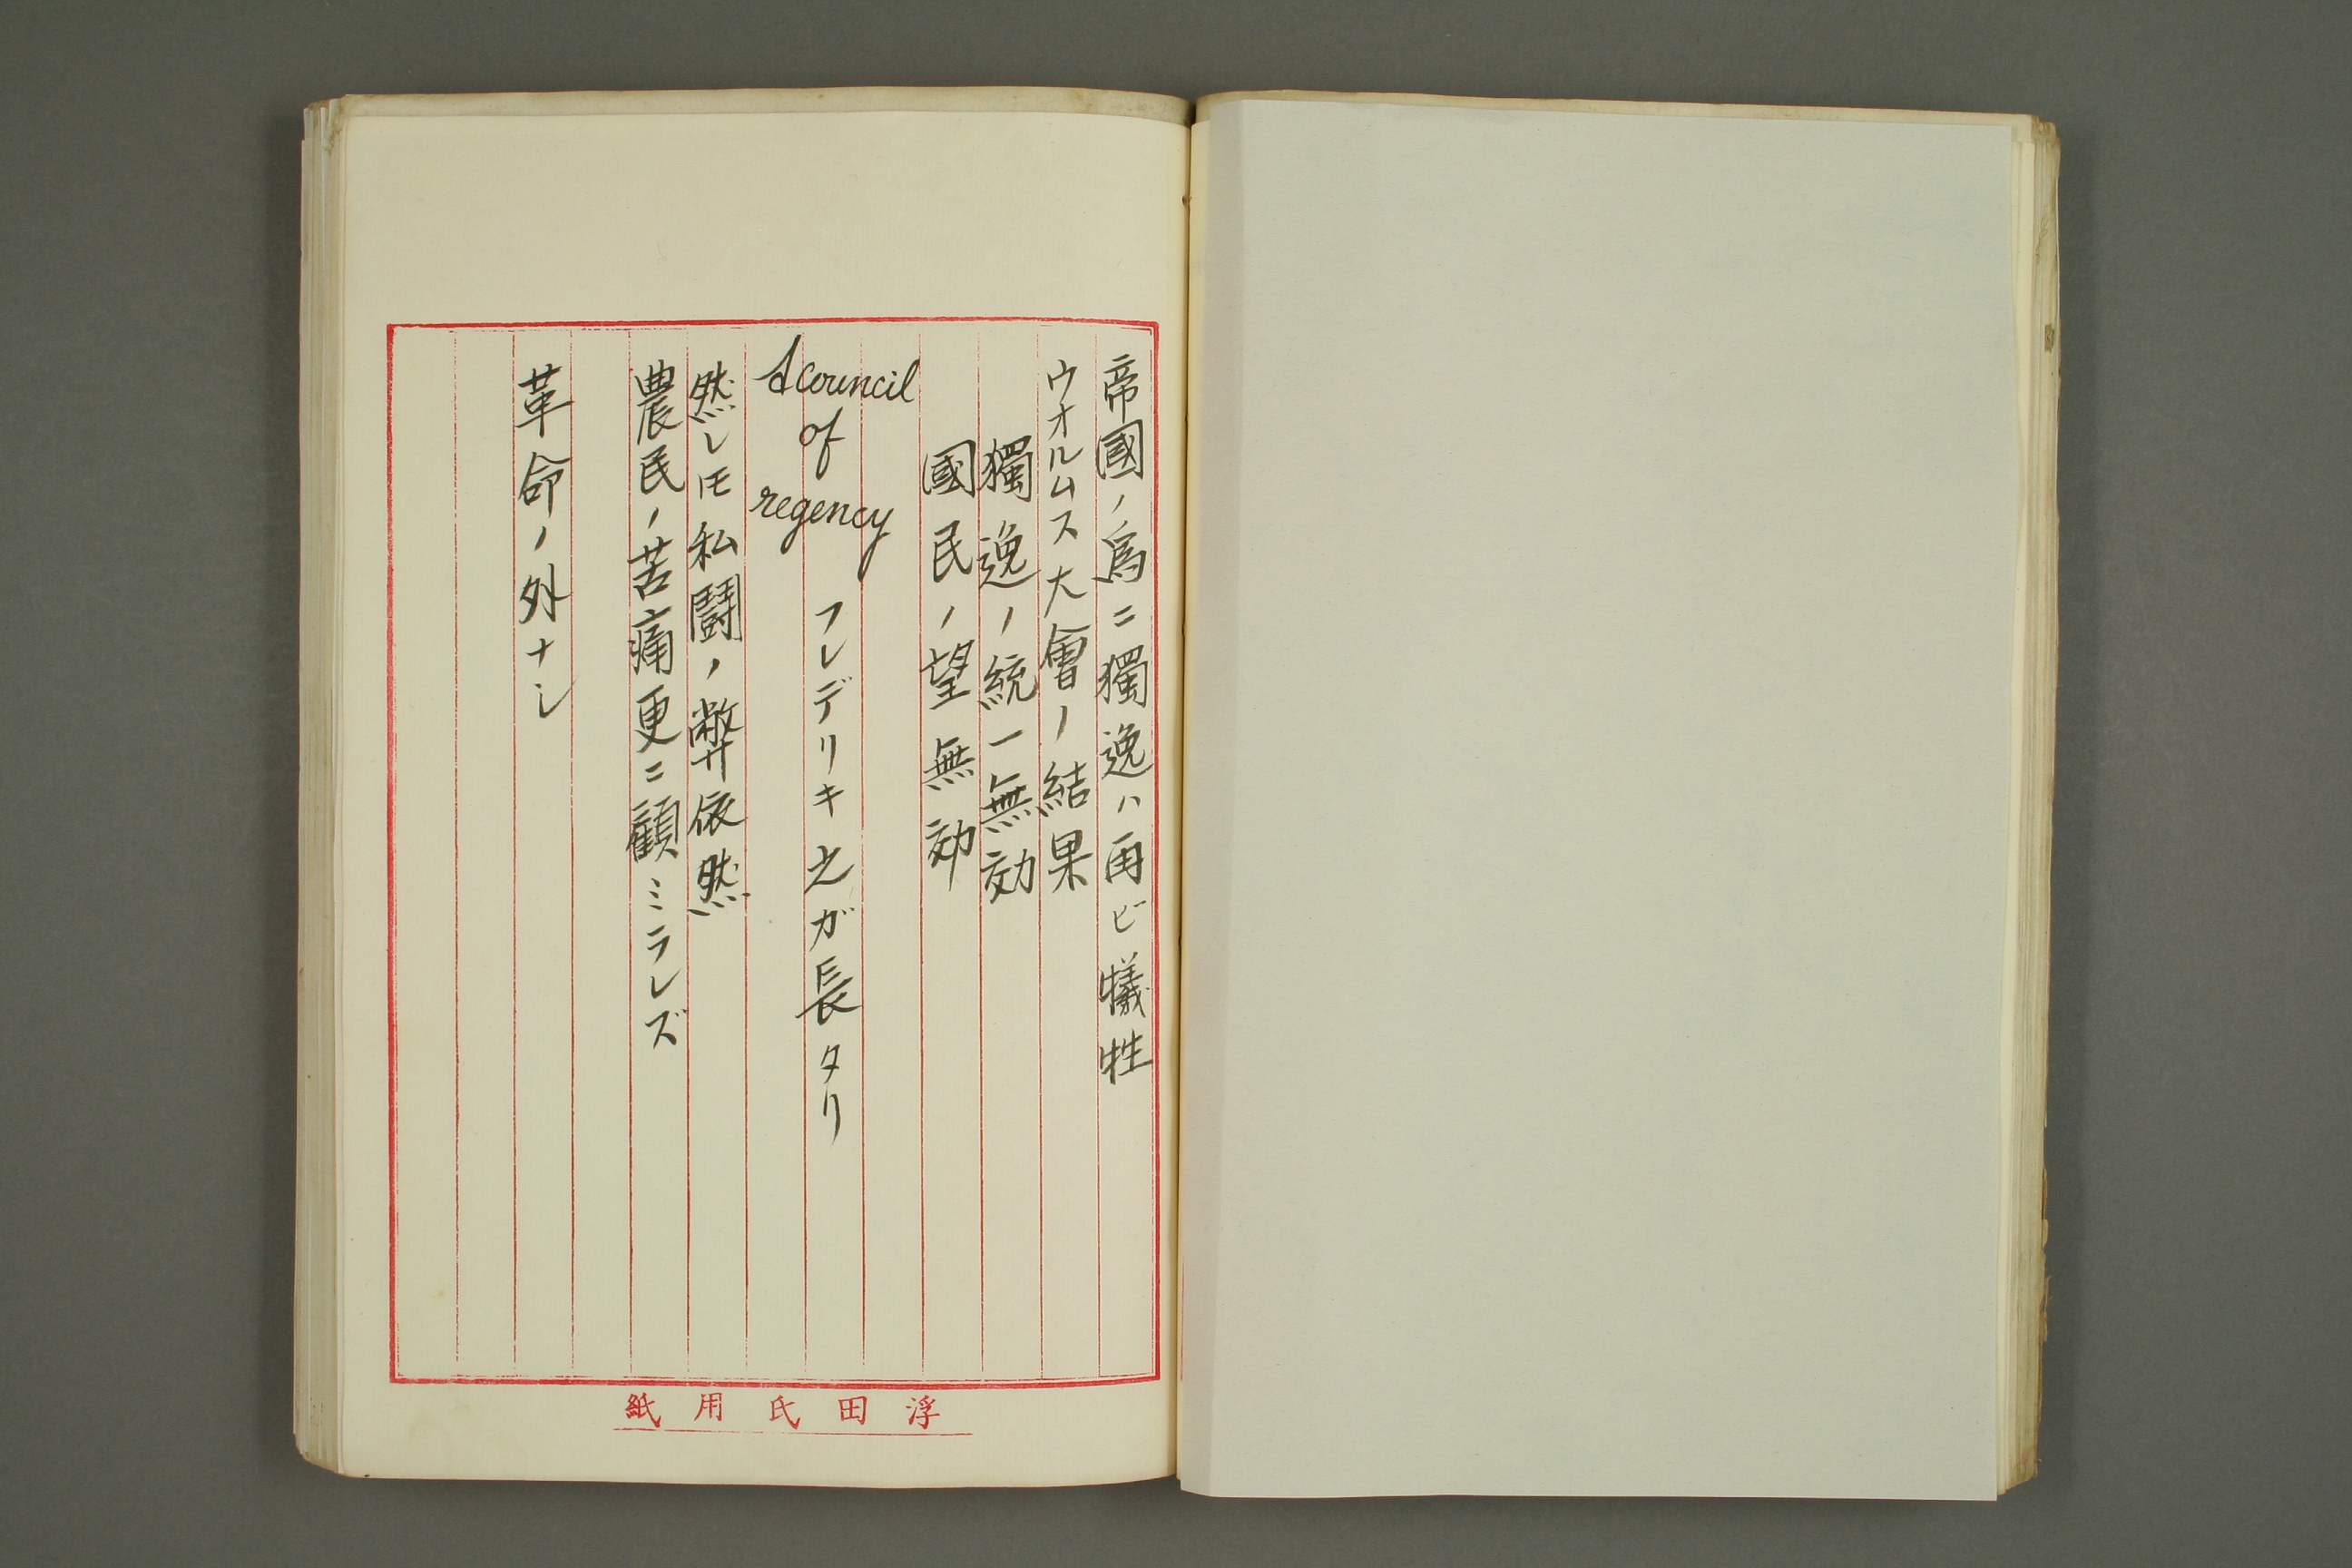 帝國ノ爲ニ獨逸ハ再ビ犠牲
ウオルムス大會ノ結果
獨逸ノ統一無効
國民ノ望無効
A council
of
regency
フレデリキ之ガ長タリ
然レ𪜈私鬪ノ弊依然
農民ノ苦痛更ニ顧ミラレズ
革命ノ外ナシ
浮田氏用紙